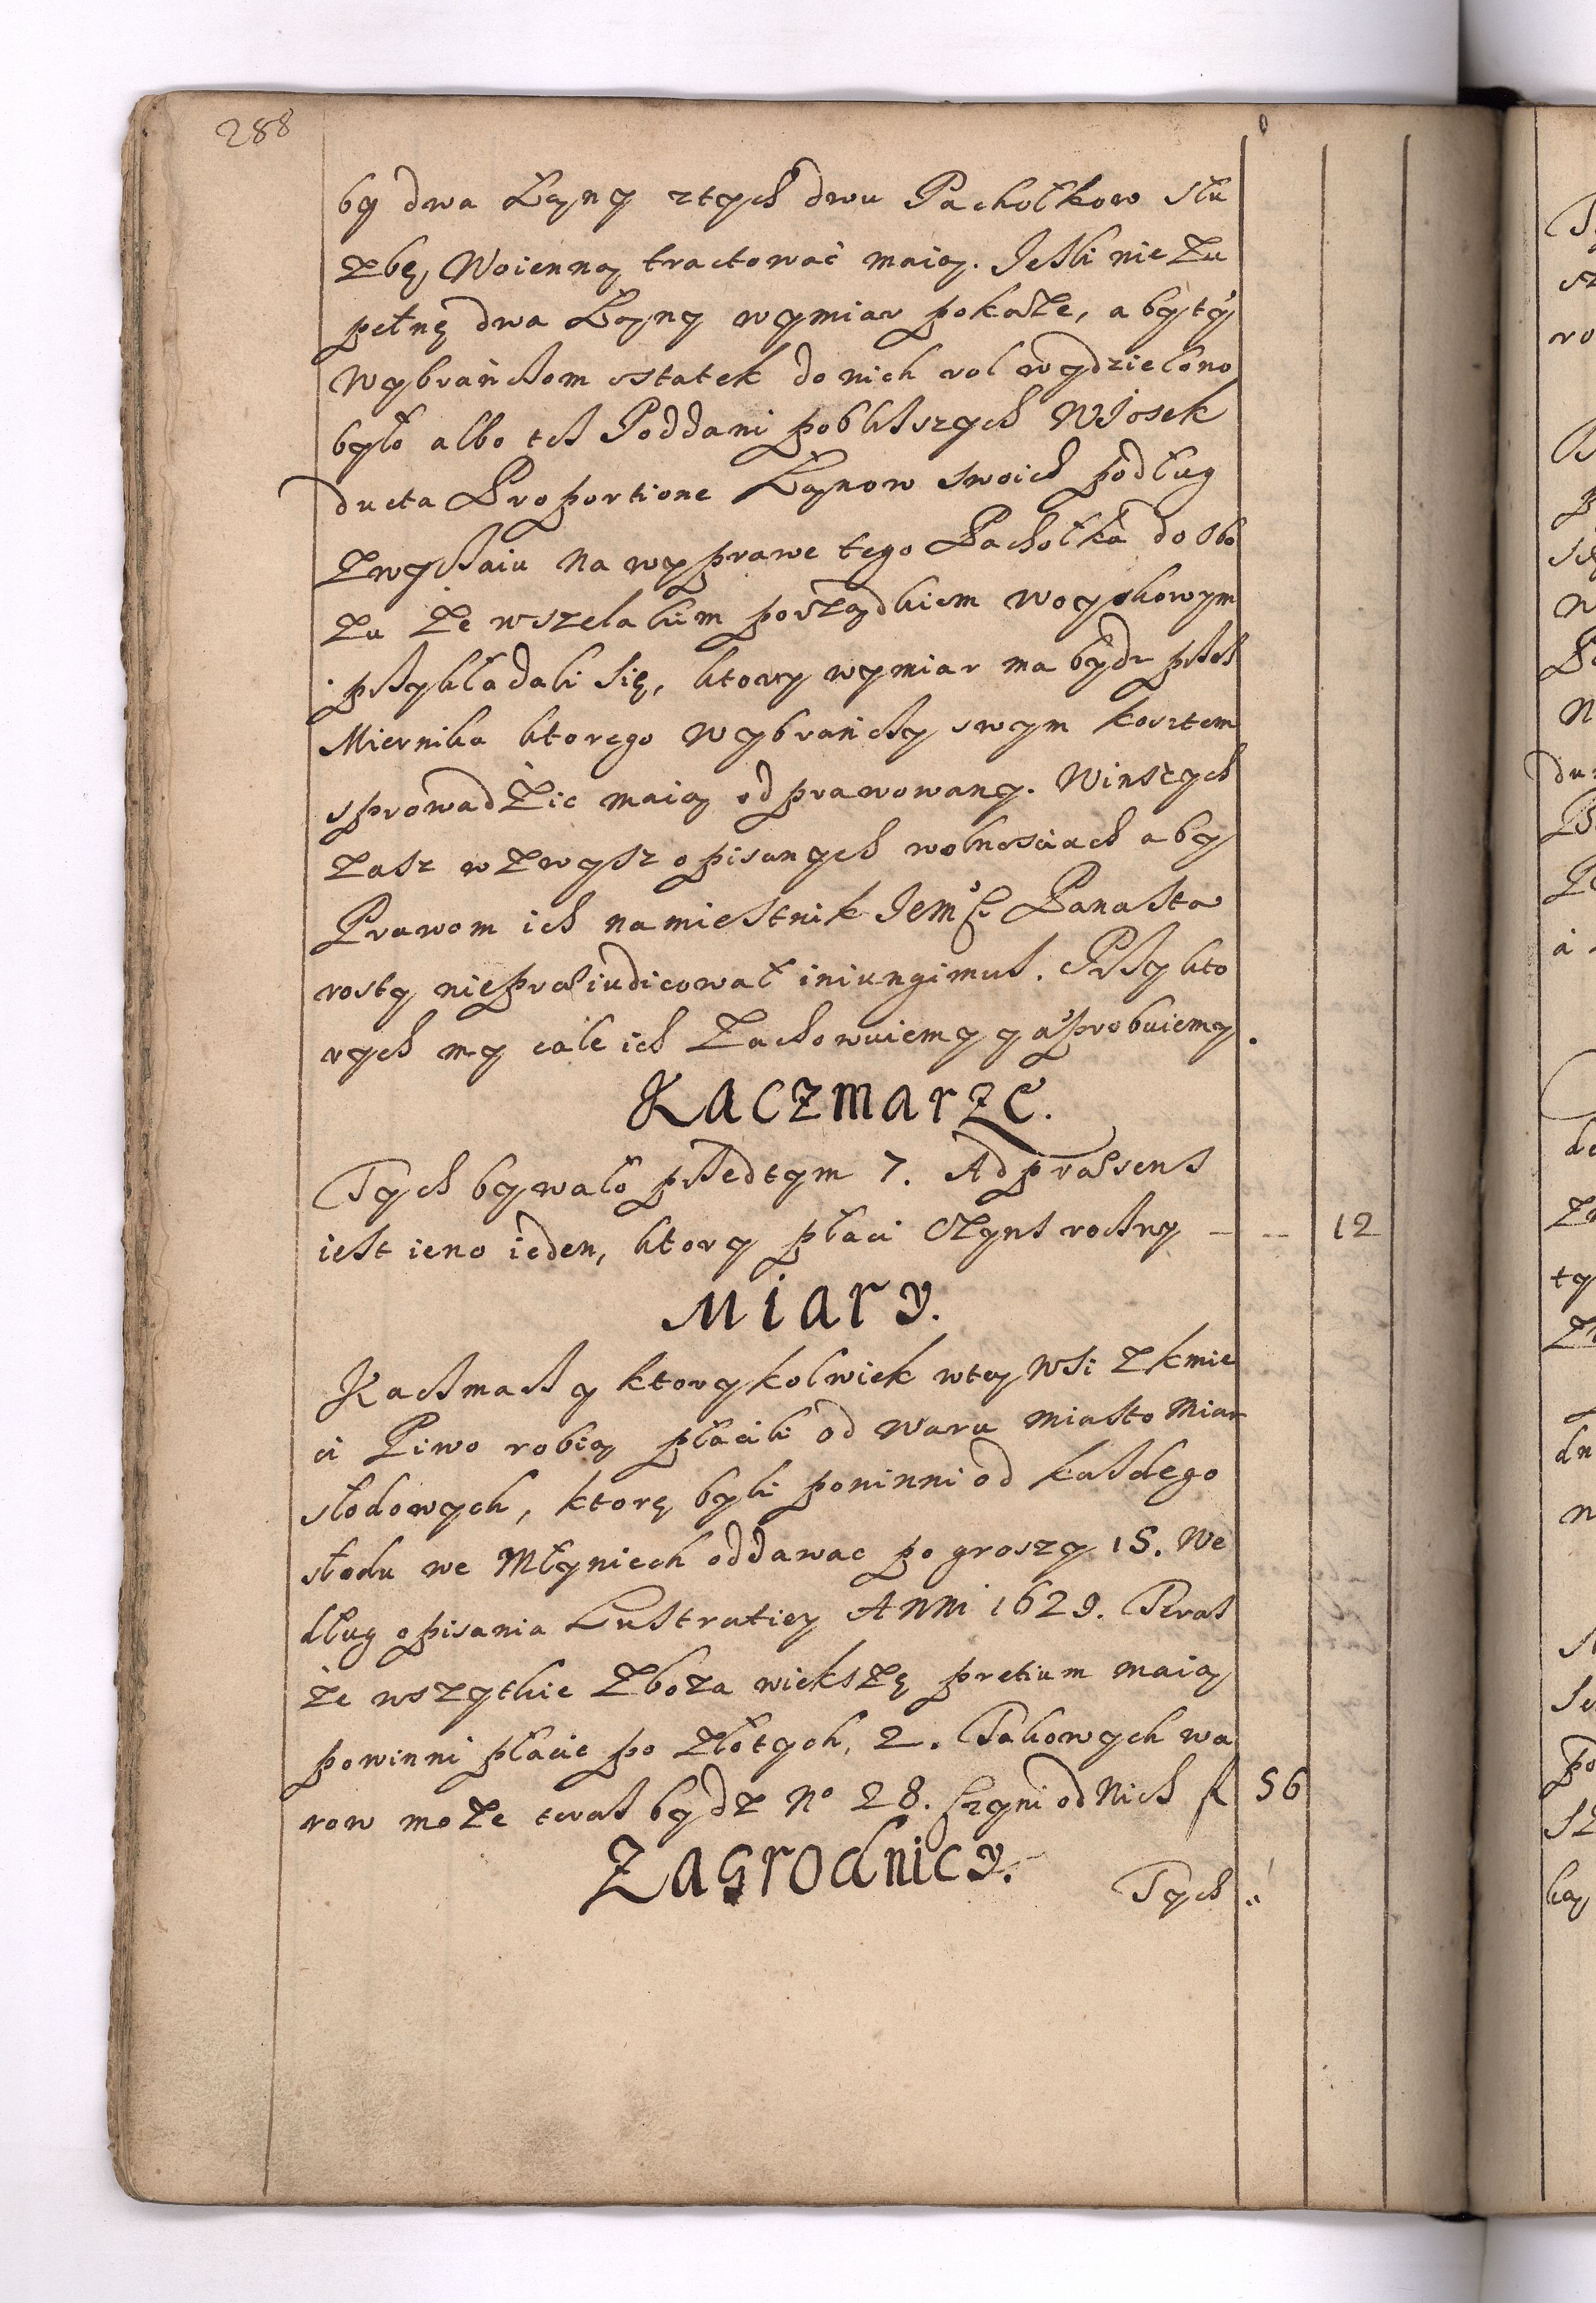 288
by dwa Łany ztych dwu Pachołkow słu
zbę, Woienną tractować maią. Jeśli nie zu
pełnę dwa Łany wymiar pokaże, aby tÿ
Wybrańcom ostatek do nich rol wydzielono
było albo też Poddani pobliższych Wiosek
ducta Proportione Łanow swoich podług
zwyczaiu na wyprawe tego Pachołka do obo
zu ze wszelakim porządkiem woyskowym
przykładali się, ktory wymiar ma bydz przes
Miernika ktorego Wybrańcy swym kosztem
sprowadzic maią odprawowany. Winszych
zasz wzwysz opisanych wolnosciach aby
Prawom ich namiestnik Jem Pana Sta
rosty niepræiudicował iniungimus. Przy kto
rych my cale ich zachowuiemy y approbuiemy.
Kaczmarze.
Tych bywało przedtym 7. Ad præsens
iest ieno ieden, ktory płaci czyns roczny - -- 12
Miary.
Kaczmarzy ktorykolwiek wtey Wsi z kmie
ci Piwo robią płacili od waru miasto Miar
słodowych, ktorę byli powinni od każdego
słodu we Młyniech oddawac po groszy 15. We
dług opisania Lustratiey Anni 1629. Teraz
że wszytkie zboza wiekszę pretium maią
powinni płacic po złotych, 2. Takowych wa
row może teraz bydz No 28. Czyni od Nich f 56
Zagrodnicy.
Tych